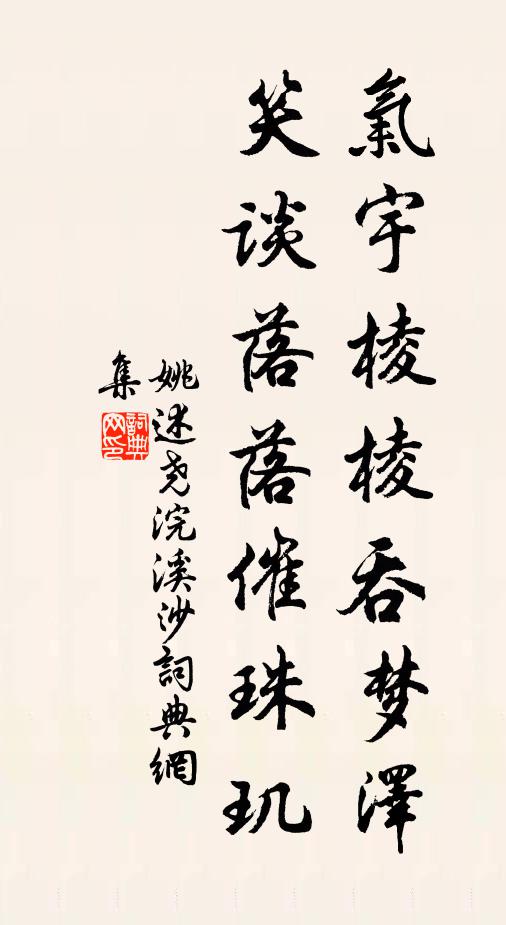 氣宇棱棱吞梦澤
笑谈落落催珠玑
姚述尧浣溪沙詞典網
集
詞典網印